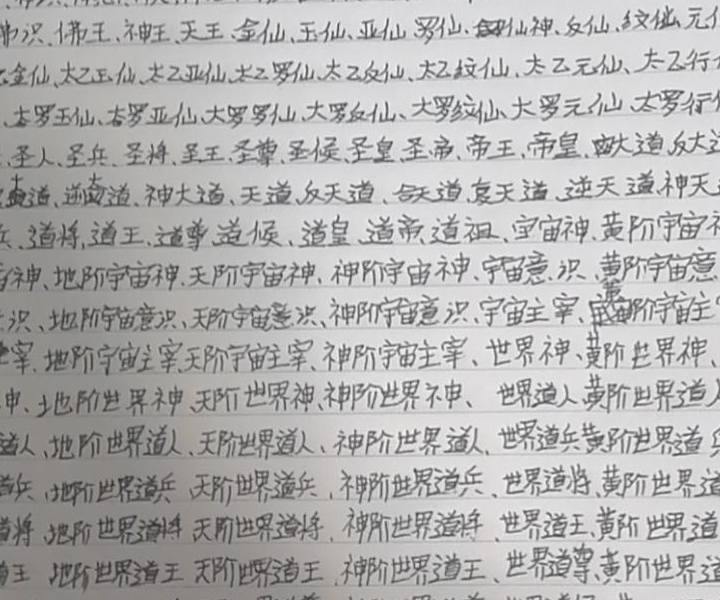 佛识、佛王、神王、天王、金仙、玉仙、亚仙、罗仙、仙神、反仙、纹仙、元仙
金仙、太乙玉仙、太乙亚仙、太乙罗仙、太乙反仙、太乙纹仙、太乙元仙、太乙行
、大罗玉仙、大罗亚仙、大罗罗仙、大罗反仙、大罗纹仙、大罗元仙、大罗行
、圣人、圣兵、圣将、圣王、圣尊、圣候、圣皇、圣帝、帝王、帝皇、大道、反大道
道、逆道、神大道、天道、反天道、合天道、哀天道、逆天道、神天
兵、道将、道王、道尊、道候、道皇、道帝、道祖、宇宙神、黄阶宇宙神
宙神、地阶宇宙神、天阶宇宙神、神阶宇宙神、宇宙意识、黄阶宇宙意
识、地阶宇宙意识、天阶宇宙意识、神阶宇宙意识、宇宙主宰、黄阶宇宙主
宰、地阶宇宙主宰、天阶宇宙主宰、神阶宇宙主宰、世界神、黄阶世界神、
神、地阶世界神、天阶世界神、神阶世界神、世界道人、黄阶世界道人
道人、地阶世界道人、天阶世界道人、神阶世界道人、世界道兵黄阶世界道兵
道兵、地阶世界道兵、天阶世界道兵、神阶世界道兵、世界道将、黄阶世界道
道将、地阶世界道将、天阶世界道将、神阶世界道将、世界道王、黄阶世界道
道王、地阶世界道王、天阶世界道王、神阶世界道王、世界道尊、黄阶世界道